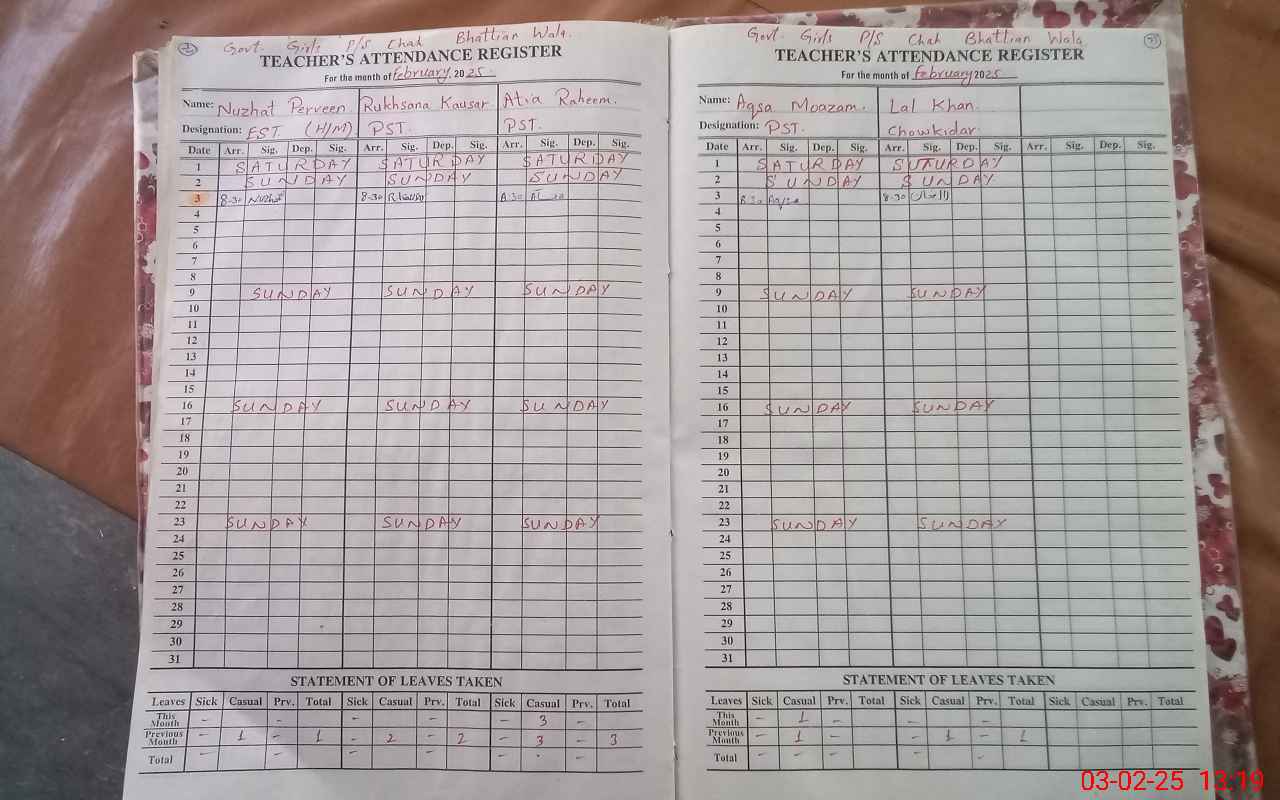 2
Govt. Girls P/S Chak Bhattian Wala.
TEACHER'S ATTENDANCE REGISTER
For the month of February, 2025.
Name: Nuzhat Perveen Rukhsana Kausar. Atia Raheem.
Designation: EST (H/M) PST. PST.
Date Arr. Sig. Dep. Sig. Arr. Sig. Dep. Sig. Arr. Sig. Dep. Sig.
1 SATURDAY SATURDAY SATURDAY
2 SUNDAY SUNDAY SUNDAY
3 8-30 Nuzhat 8-30 8:30
4
5
6
7
8
9 SUNDAY SUNDAY SUNDAY
10
11
12
13
14
15
16 SUNDAY SUNDAY SUNDAY
17
18
19
20
21
22
23 SUNDAY SUNDAY SUNDAY
24
25
26
27
28
29
30
31
STATEMENT OF LEAVES TAKEN
Leaves Sick Casual Prv. Total Sick Casual Prv. Total Sick Casual Prv. Total
This Month - - - - - 3 -
Previous Month - 1 - 1 - 2 - 2 - 3 - 3
Total - - - - - -
Govt. Girls P/S Chak Bhattian Wala
TEACHER'S ATTENDANCE REGISTER
For the month of February 2025
Name: Aqsa Moazam. Lal Khan.
Designation: PST. Chowkidar.
Date Arr. Sig. Dep. Sig. Arr. Sig. Dep. Sig. Arr. Sig. Dep. Sig.
1 SATURDAY SUTURDAY
2 SUNDAY SUNDAY
3 8:30 Aqsa 8-30
4
5
6
7
8
9 SUNDAY SUNDAY
10
11
12
13
14
15
16 SUNDAY SUNDAY
17
18
19
20
21
22
23 SUNDAY SUNDAY
24
25
26
27
28
29
30
31
STATEMENT OF LEAVES TAKEN
Leaves Sick Casual Prv. Total Sick Casual Prv. Total Sick Casual Prv. Total
This Month - 1 - - -
Previous Month - 1 - - 1 - 1
Total - - - - -
03-02-25 13:19